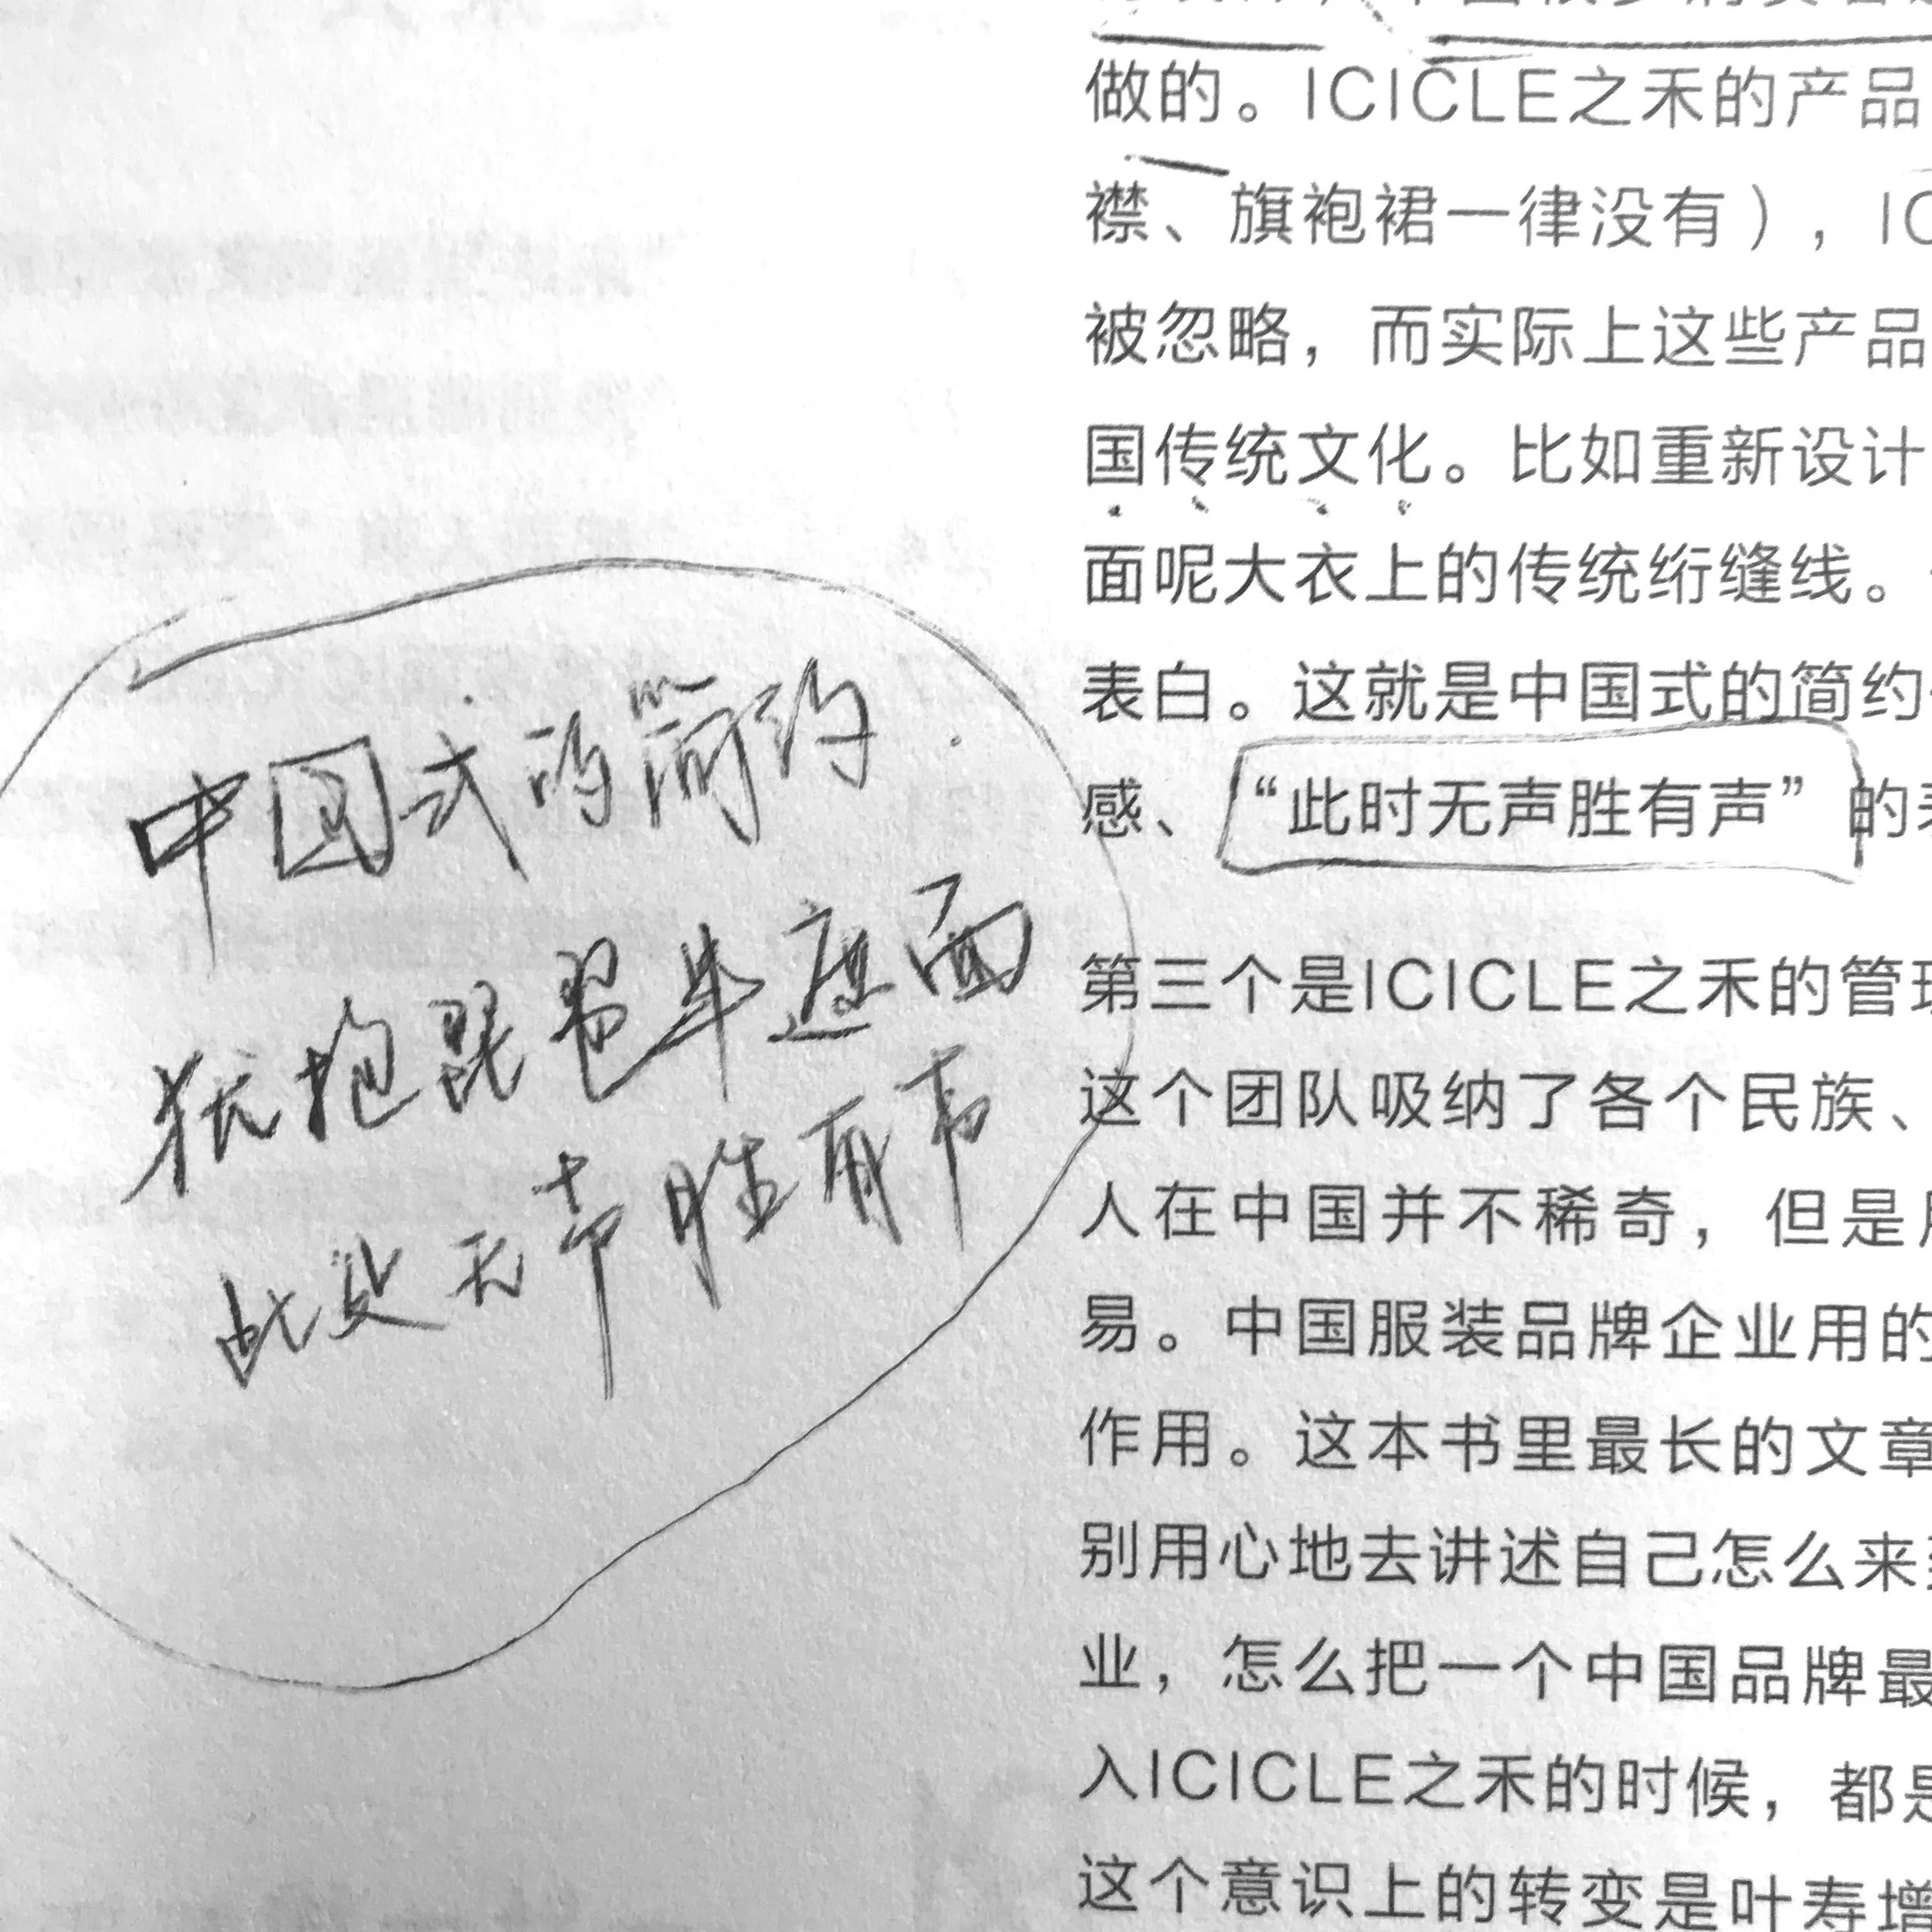 中国式的简约
犹抱琵琶半遮面
此处无声胜有声
做的。ICICLE之禾的产品
襟、旗袍裙一律没有），IC
被忽略，而实际上这些产品
国传统文化。比如重新设计
面呢大衣上的传统绗缝线。
表白。这就是中国式的简约
感、“此时无声胜有声”的表
第三个是ICICLE之禾的管理
这个团队吸纳了各个民族、
人在中国并不稀奇，但是
易。中国服装品牌企业用的
作用。这本书里最长的文章
别用心地去讲述自己怎么来到
业，怎么把一个中国品牌最
入ICICLE之禾的时候，都是
这个意识上的转变是叶寿增